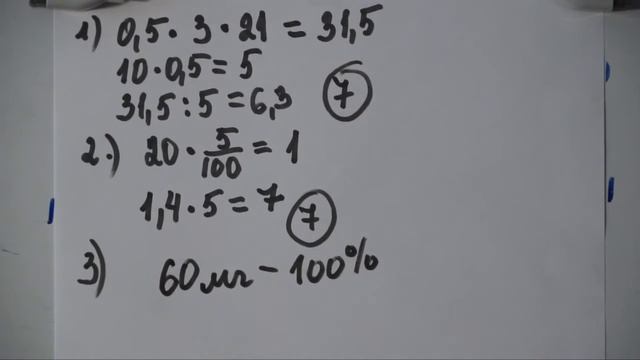 1) 0,5 · 3 · 21 = 31,5
10 · 0,5 = 5
31,5 : 5 = 6,3 7
2.) 20 · 5/100 = 1
1,4 · 5 = 7 7
3) 60 мг - 100%